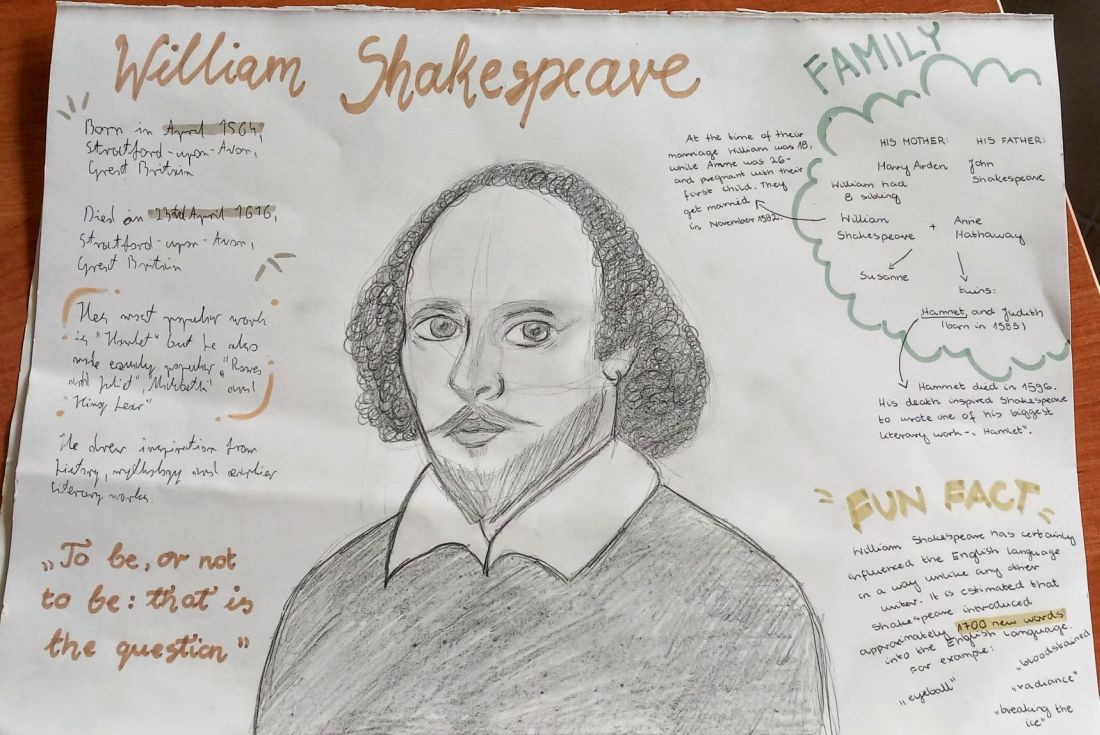 William Shakespeare
Born in April 1564,
Stratford-upon-Avon,
Great Britin
Died in 23rd April 1616,
Stratford-upon-Avon,
Great Britin
most popular work
is "Hamlet" but he also
wrote equally popular „Romeo
and Juliet", and
"King Lear"
He drew inspiration from
history, mythology and earlier
literary works.
„To be, or not
to be: that is
the question"
At the time of their
marriage William was 18,
while Anne was 26-
and pregnant with their
first child. They
get married
in November 1582.
FAMILY
HIS MOTHER: HIS FATHER:
Mary Arden John
Shakespeare
William had
8 sibling
William + Anne
Shakespeare Hathaway
Susanne
twins:
Hamnet and Judith
(born in 1585)
Hammet died in 1596.
His death inspired Shakespeare
to wrote one of his biggest
literary work-„Hamlet".
FUN FACT
William Shakespeare has certainly
influenced the English language
in a way unlike any other
writer. It is estimated that
Shakespeare introduced
approximately 1700 new words
into the English language.
For example:
„bloodstained
„eyeball" „radiance"
„breaking the
ice"